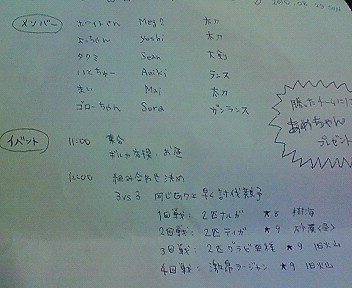 メンバー
ホワイトペん Meg2 太刀
よっちゃん Yoshi 太刀
タクミ Sean 大剣
いとちゅー Aniki ランス
まい Mai 太刀
ゴローちゃん Sora ガンランス
勝ったチームには
あめちゃん
プレゼント
イベント
11:00 集合
ギルカ交換
12:00 組み合わせ決め
3 vs 3 同じクエ 早く討伐競争
1回戦: 2匹ナルガ ★8 樹海
2回戦: 2匹ティガ ★9
3回戦: 2匹グラビ亜種 ★9 旧火山
4回戦: 激昂ラージャン ★9 旧火山